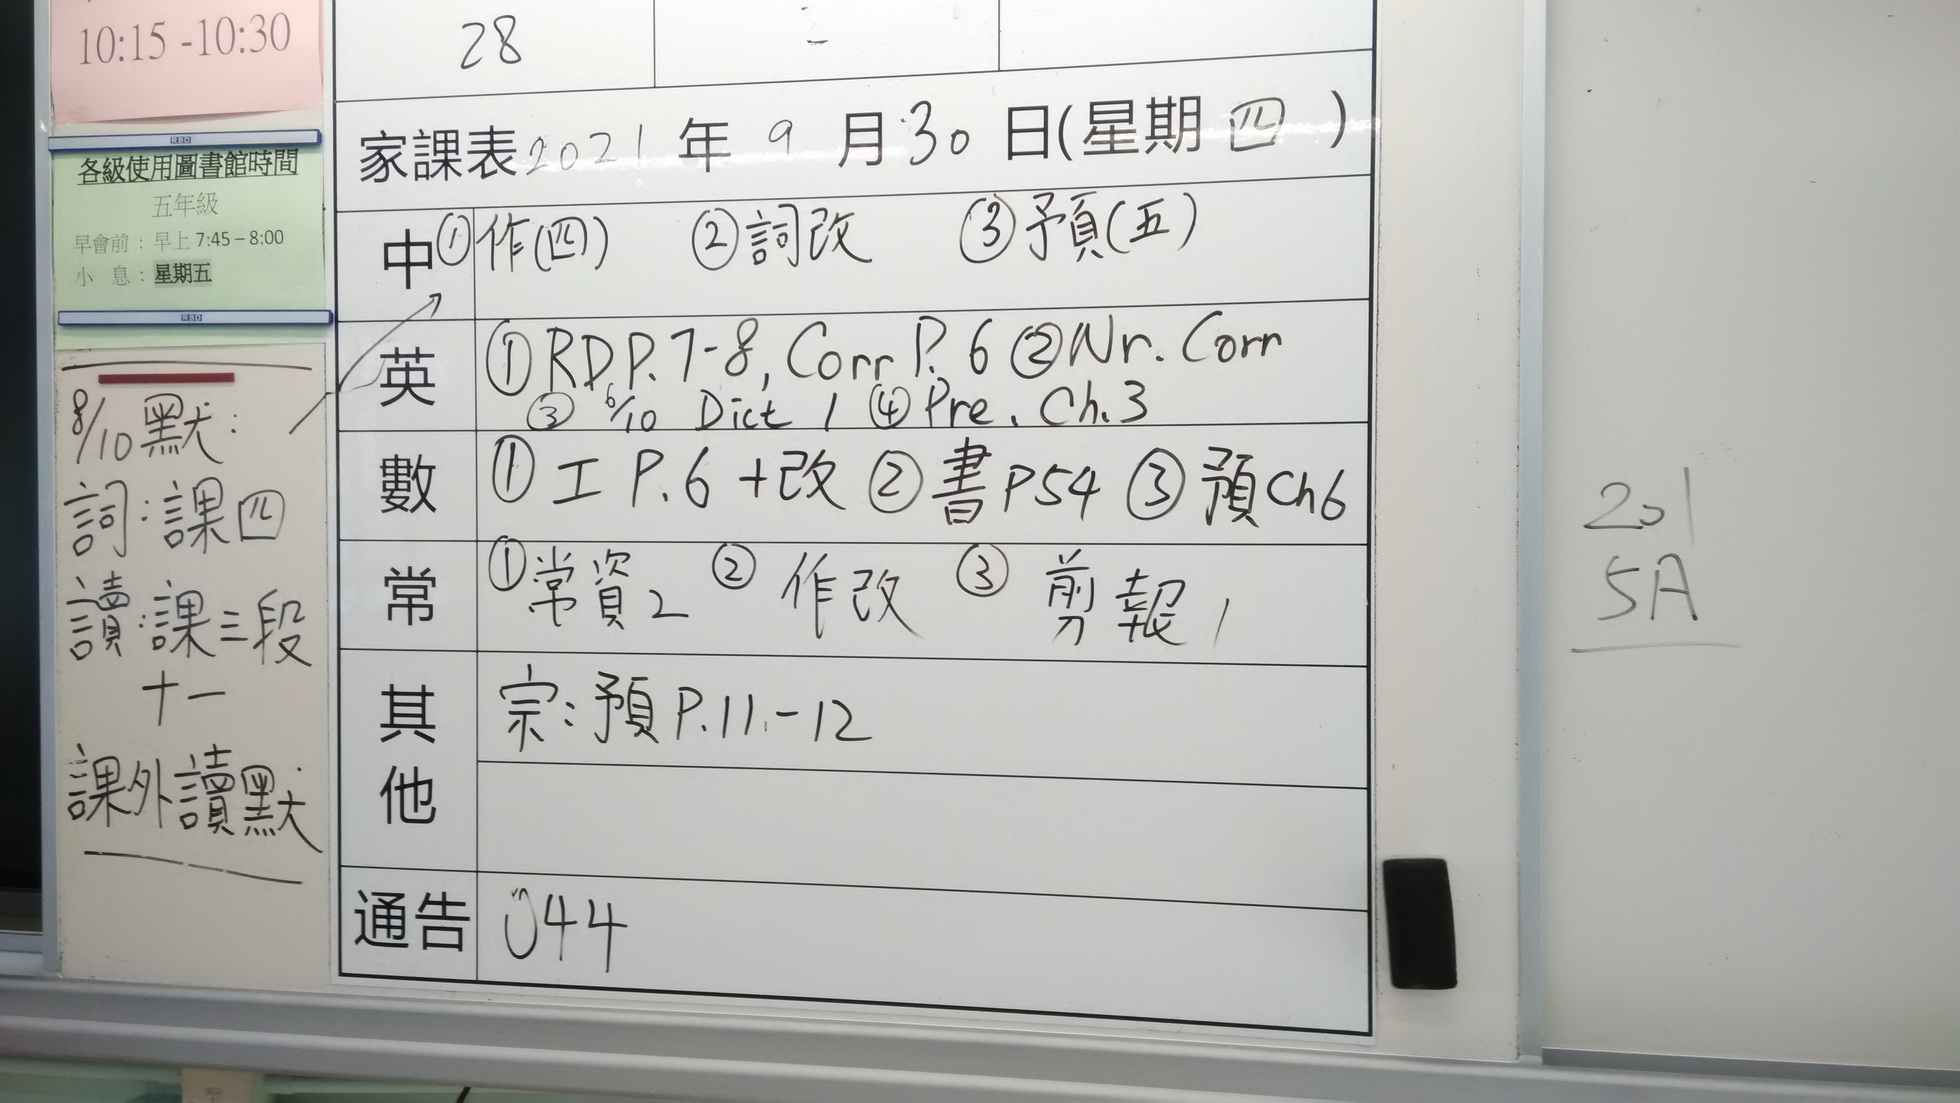 10:15 -10:30
RBD
各級使用圖書館時間
五年級
早會前：早上 7:45 – 8:00
小 息：星期五
RBD
8/10 默：
詞：課四
讀：課三段
十一
課外讀默
28 -
家課表 2021 年 9 月 30 日(星期 四 )
中 ①作(四) ②詞改 ③預(五)
英 ①RD,P.7-8, Corr P.6 ②Nr. Corr
③ 6/10 Dict 1 ④Pre. Ch.3
數 ①工 P.6 +改 ②書P54 ③預Ch6
常 ①常資2 ②作改 ③剪報1
其他 宗：預P.11-12
通告 044
201
5A